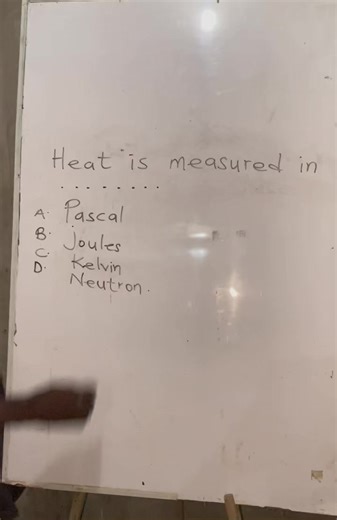 Heat is measured in
.........
A. Pascal
B. Joules
C. Kelvin
D. Neutron.